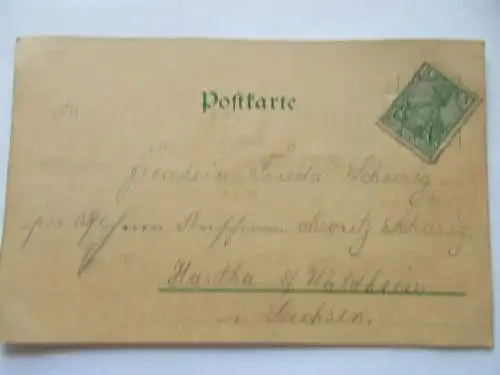 Postkarte
Fräulein Frieda Schurig
per Herrn Moritz Schurig
Hartha b/ Waldheim
i Sachsen.